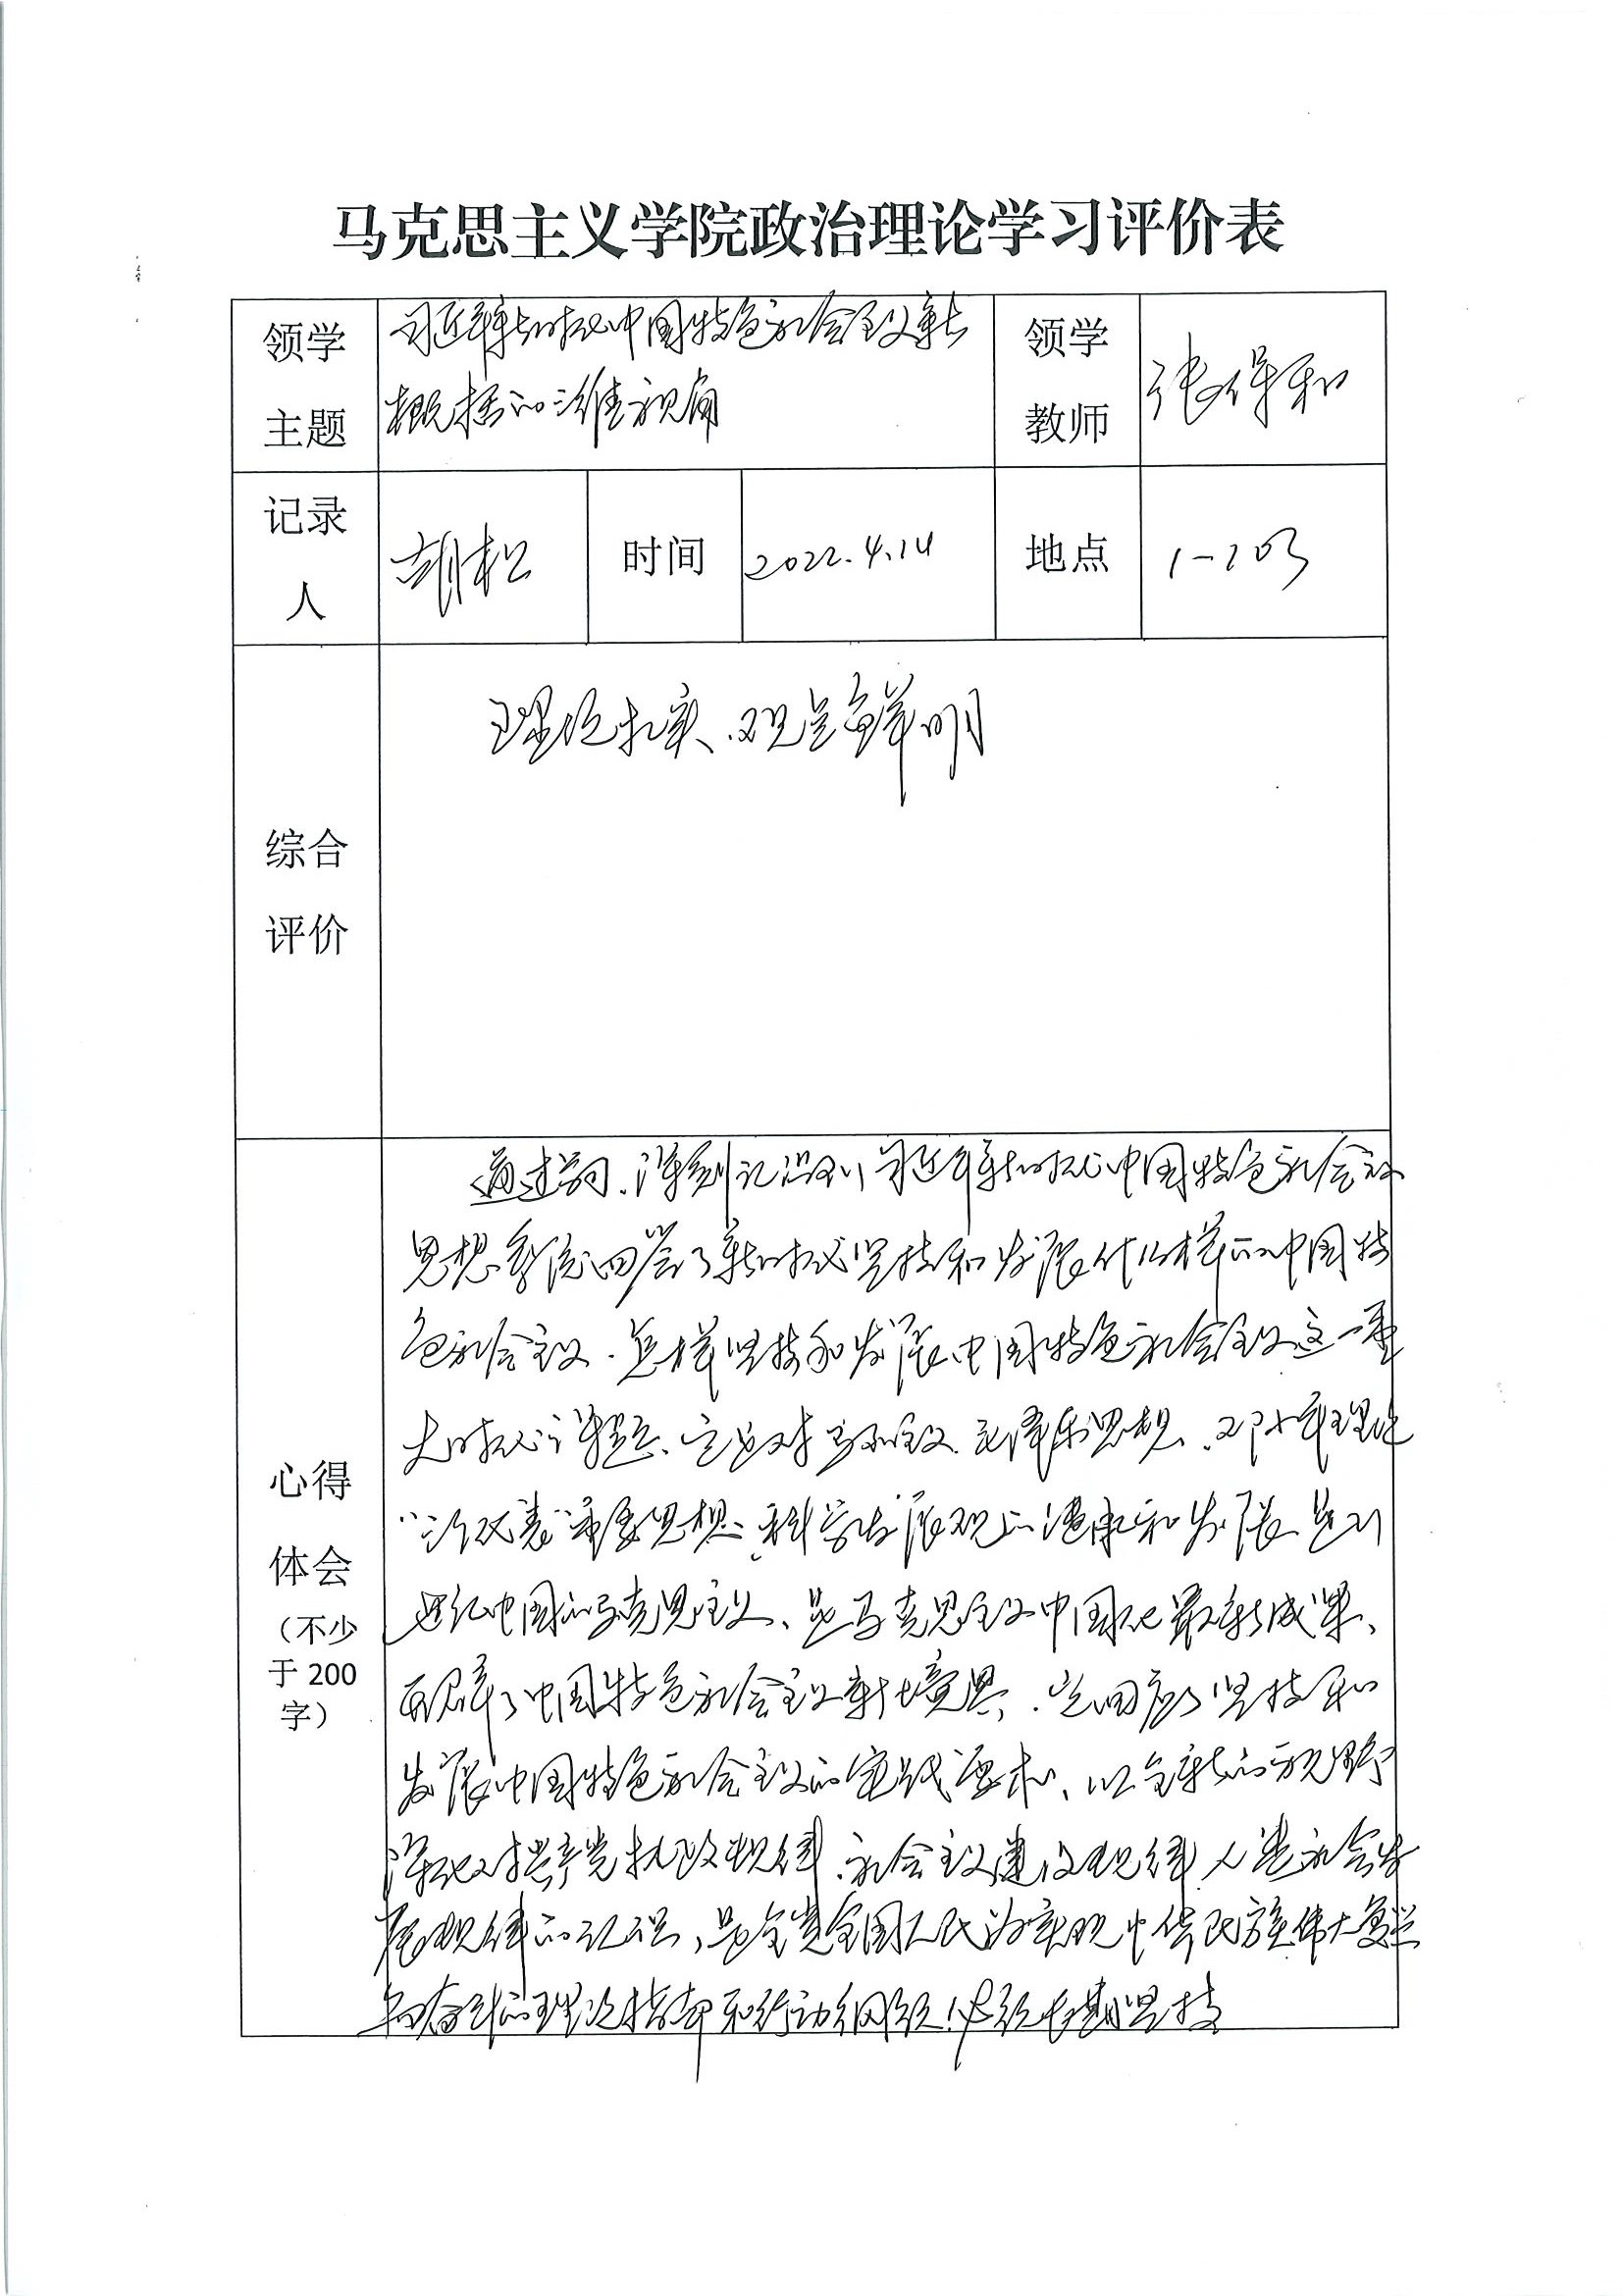 马克思主义学院政治理论学习评价表
领学
主题
习近平新时代中国特色社会主义新
概括的三维视角
领学
教师
张保和
记录
人
胡松
时间
2022.4.14
地点
1-203
综合
评价
理论扎实、观点鲜明
心得
体会
(不少
于 200
字)
通过学习、深刻认识到习近平新时代中国特色社会主义
思想系统回答了新时代坚持和发展什么样的中国特
色社会主义、怎样坚持和发展中国特色社会主义这一重
大时代课题、它是对马列主义、毛泽东思想、邓小平理论
“三个代表”重要思想、科学发展观的继承和发展,是21
世纪中国的马克思主义、是马克思主义中国化最新成果、
开辟了中国特色社会主义新境界、它回应了坚持和
发展中国特色社会主义的实践要求、以全新的视野
深化对共产党执政规律、社会主义建设规律、人类社会发
展规律的认识,是全党全国人民为实现中华民族伟大复兴
而奋斗的理论指南和行动纲领、必须长期坚持